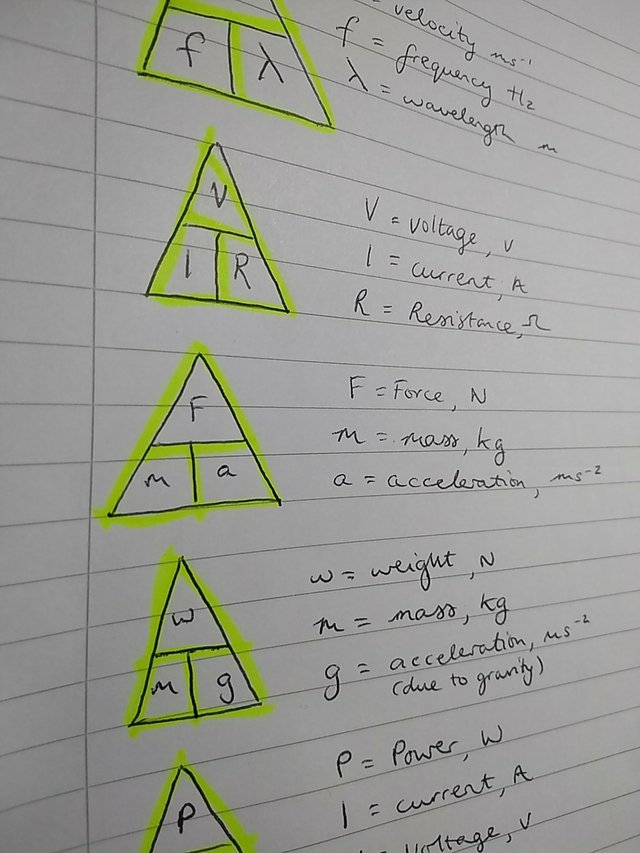 = velocity ms⁻¹
f λ
f = frequency Hz
λ = wavelength m
V
I R
V = voltage, V
I = current, A
R = Resistance, Ω
F
m a
F = Force, N
m = mass, kg
a = acceleration, ms⁻²
w
m g
w = weight, N
m = mass, kg
g = acceleration, ms⁻²
(due to gravity)
P
P = Power, W
I = current, A
voltage, V